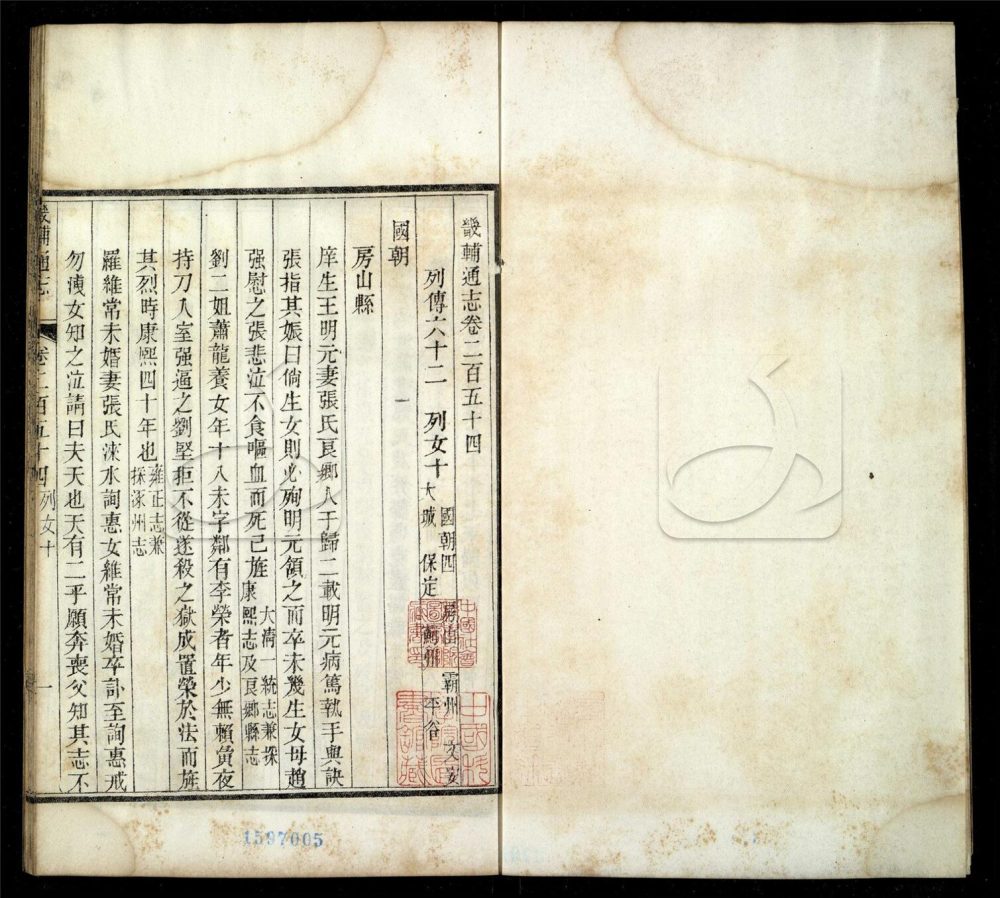 畿輔通志卷二百五十四
列傳六十二 列女十 國朝四 房山 霸州 文安
大城 保定 薊州 平谷
國朝
房山縣
庠生王明元妻張氏良鄉人于歸二載明元病篤執手與訣
張指其娠曰倘生女則必殉明元領之而卒未幾生女母趙
强慰之張悲泣不食嘔血而死已旌 大清一統志兼採
康熙志及良鄉縣志
劉二姐蕭龍養女年十八未字鄰有李榮者年少無賴黄夜
持刀入室强逼之劉堅拒不從遂殺之獄成置榮於法而旌
其烈時康熙四十年也 雍正志兼
採涿州志
羅維常未婚妻張氏淶水詢惠女維常未婚卒訃至詢惠戒
勿洩女知之泣請曰夫天也天有二乎願奔喪父知其志不
畿輔通志 卷二百五十四 列女十 一
1597005